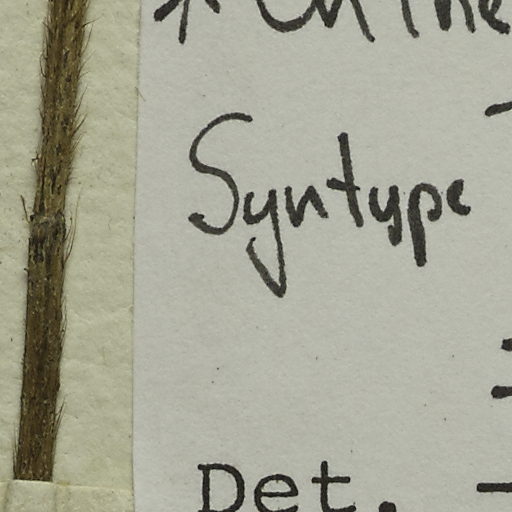 Syntype
Det.